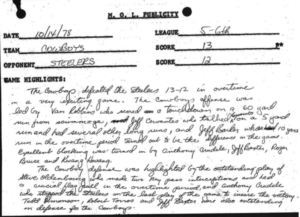 M. O. L. PUBLICITY
DATE 10/14/78 LEAGUE 5-6th
TEAM COWBOYS SCORE 13
OPPONENT STEELERS SCORE 12
GAME HIGHLIGHTS:
The Cowboys defeated the Steelers 13-12 in overtime
in a very exciting game. The Cowboys offense was
led by Van Robbins who scored on a touchdown on a 60 yard
run from scrimmage, and Jeff Cervantes who talked on a 5 yard
run and had several other long runs, and Jeff Baxter, whose 10 yard
run in the overtime period turned out to be the difference in the game.
Excellent blocking was turned in by Anthony Audale, Jeff Baxter, Roger
Bruce and
The Cowboys defense was highlighted by the outstanding play of
Steve who made two key pass interceptions and had
a crucial play in the overtime period, and Anthony Audale
who stopped the Steelers on the last play of the game to insure the victory.
Todd Robert Torres and Jeff Baxter were also outstanding
on defense for the Cowboys.